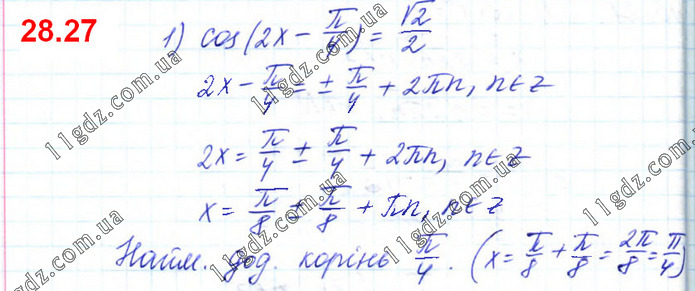 28.27
1) cos(2x − π/6) = √2/2
2x − π/4 = ± π/4 + 2πn, n∈Z
2x = π/4 ± π/4 + 2πn, n∈Z
x = π/8 ± π/8 + πn, n∈Z
Найм. дод. корінь π/4. (x = π/8 + π/8 = 2π/8 = π/4)
11gdz.com.ua
11gdz.com.ua
11gdz.com.ua
11gdz.com.ua
11gdz.com.ua
11gdz.com.ua